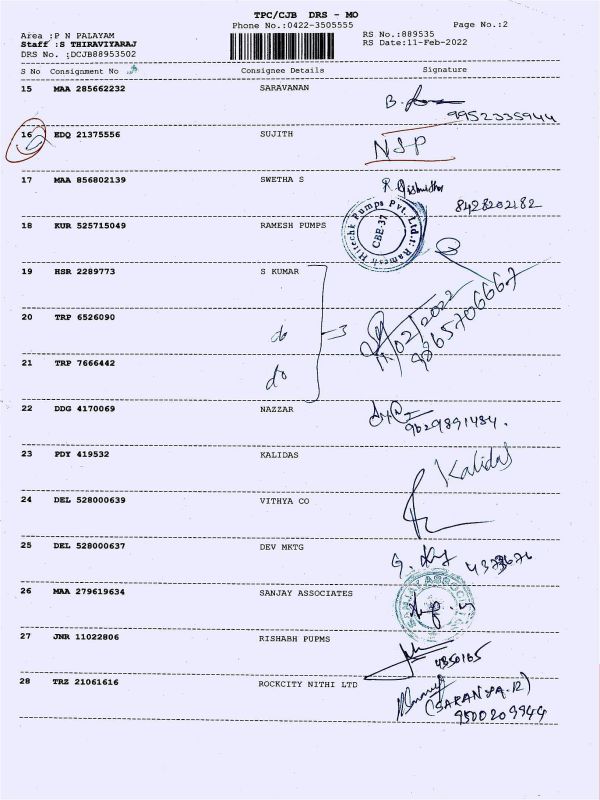 TPC/CJB DRS - MO
Phone No.:0422-3505555
Page No.:2
Area :P N PALAYAM
RS No.:889535
Staff :S THIRAVIYARAJ
RS Date:11-Feb-2022
DRS No. :DCJB88953502
S No Consignment No Consignee Details Signature
15 MAA 285662232 SARAVANAN
9952335944
16 EDQ 21375556 SUJITH NSP
17 MAA 856802139 SWETHA S
8428202182
18 KUR 525715049 RAMESH PUMPS
Ramesh Hitechk Pumps Pvt. Ltd.
CBE-37
19 HSR 2289773 S KUMAR
20 TRP 6526090 do 3
11/02/2022
9865706667
21 TRP 7666442 do
22 DDG 4170069 NAZZAR
9629891484.
23 PDY 419532 KALIDAS Kalidas
24 DEL 528000639 VITHYA CO
25 DEL 528000637 DEV MKTG
26 MAA 279619634 SANJAY ASSOCIATES
SANJAY ASSOCIATES
27 JNR 11022806 RISHABH PUPMS
4350165
28 TRZ 21061616 ROCKCITY NITHI LTD
(SARANYA.R)
9500209944